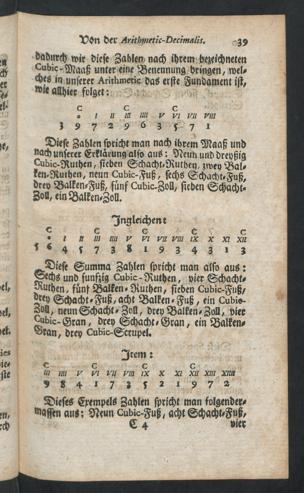 Von der Arithmetic-Decimalis. 39
dadurch wir diese Zahlen nach ihrem bezeichneten
Cubic-Maaß unter eine Benennung bringen, wel-
ches in unserer Arithmetic das erste Fundament ist,
wie allhier folget:
C C C
o I II III IV V VI VII VIII
3 9 7 2 9 6 3 5 7 1
Diese Zahlen spricht man nach ihrem Maaß und
nach unserer Erklärung also aus: Neun und dreyßig
Cubic-Ruthen, sieben Schacht-Ruthen, zwey Bal-
ken-Ruthen, neun Cubic-Fuß, sechs Schacht-Fuß,
drey Balken-Fuß, fünf Cubic-Zoll, sieben Schacht-
Zoll, ein Balken-Zoll.
Ingleichen:
C C C C C
o I II III IV V VI VII VIII IX X XI XII
5 6 4 5 7 3 8 1 9 3 4 3 1 3
Diese Summa Zahlen spricht man also aus:
Sechs und funfzig Cubic-Ruthen, vier Schacht-
Ruthen, fünf Balken-Ruthen, sieben Cubic-Fuß,
drey Schacht-Fuß, acht Balken-Fuß, ein Cubic-
Zoll, neun Schacht-Zoll, drey Balken-Zoll, vier
Cubic-Gran, drey Schacht-Gran, ein Balken-
Gran, drey Cubic-Scrupel.
Item:
C C C C
III IIII V VI VII VIII IX X XI XII XIII XIIII
9 8 4 1 7 3 5 2 1 9 7 2
Dieses Exempels Zahlen spricht man folgender-
massen aus: Neun Cubic-Fuß, acht Schacht-Fuß,
C 4 vier